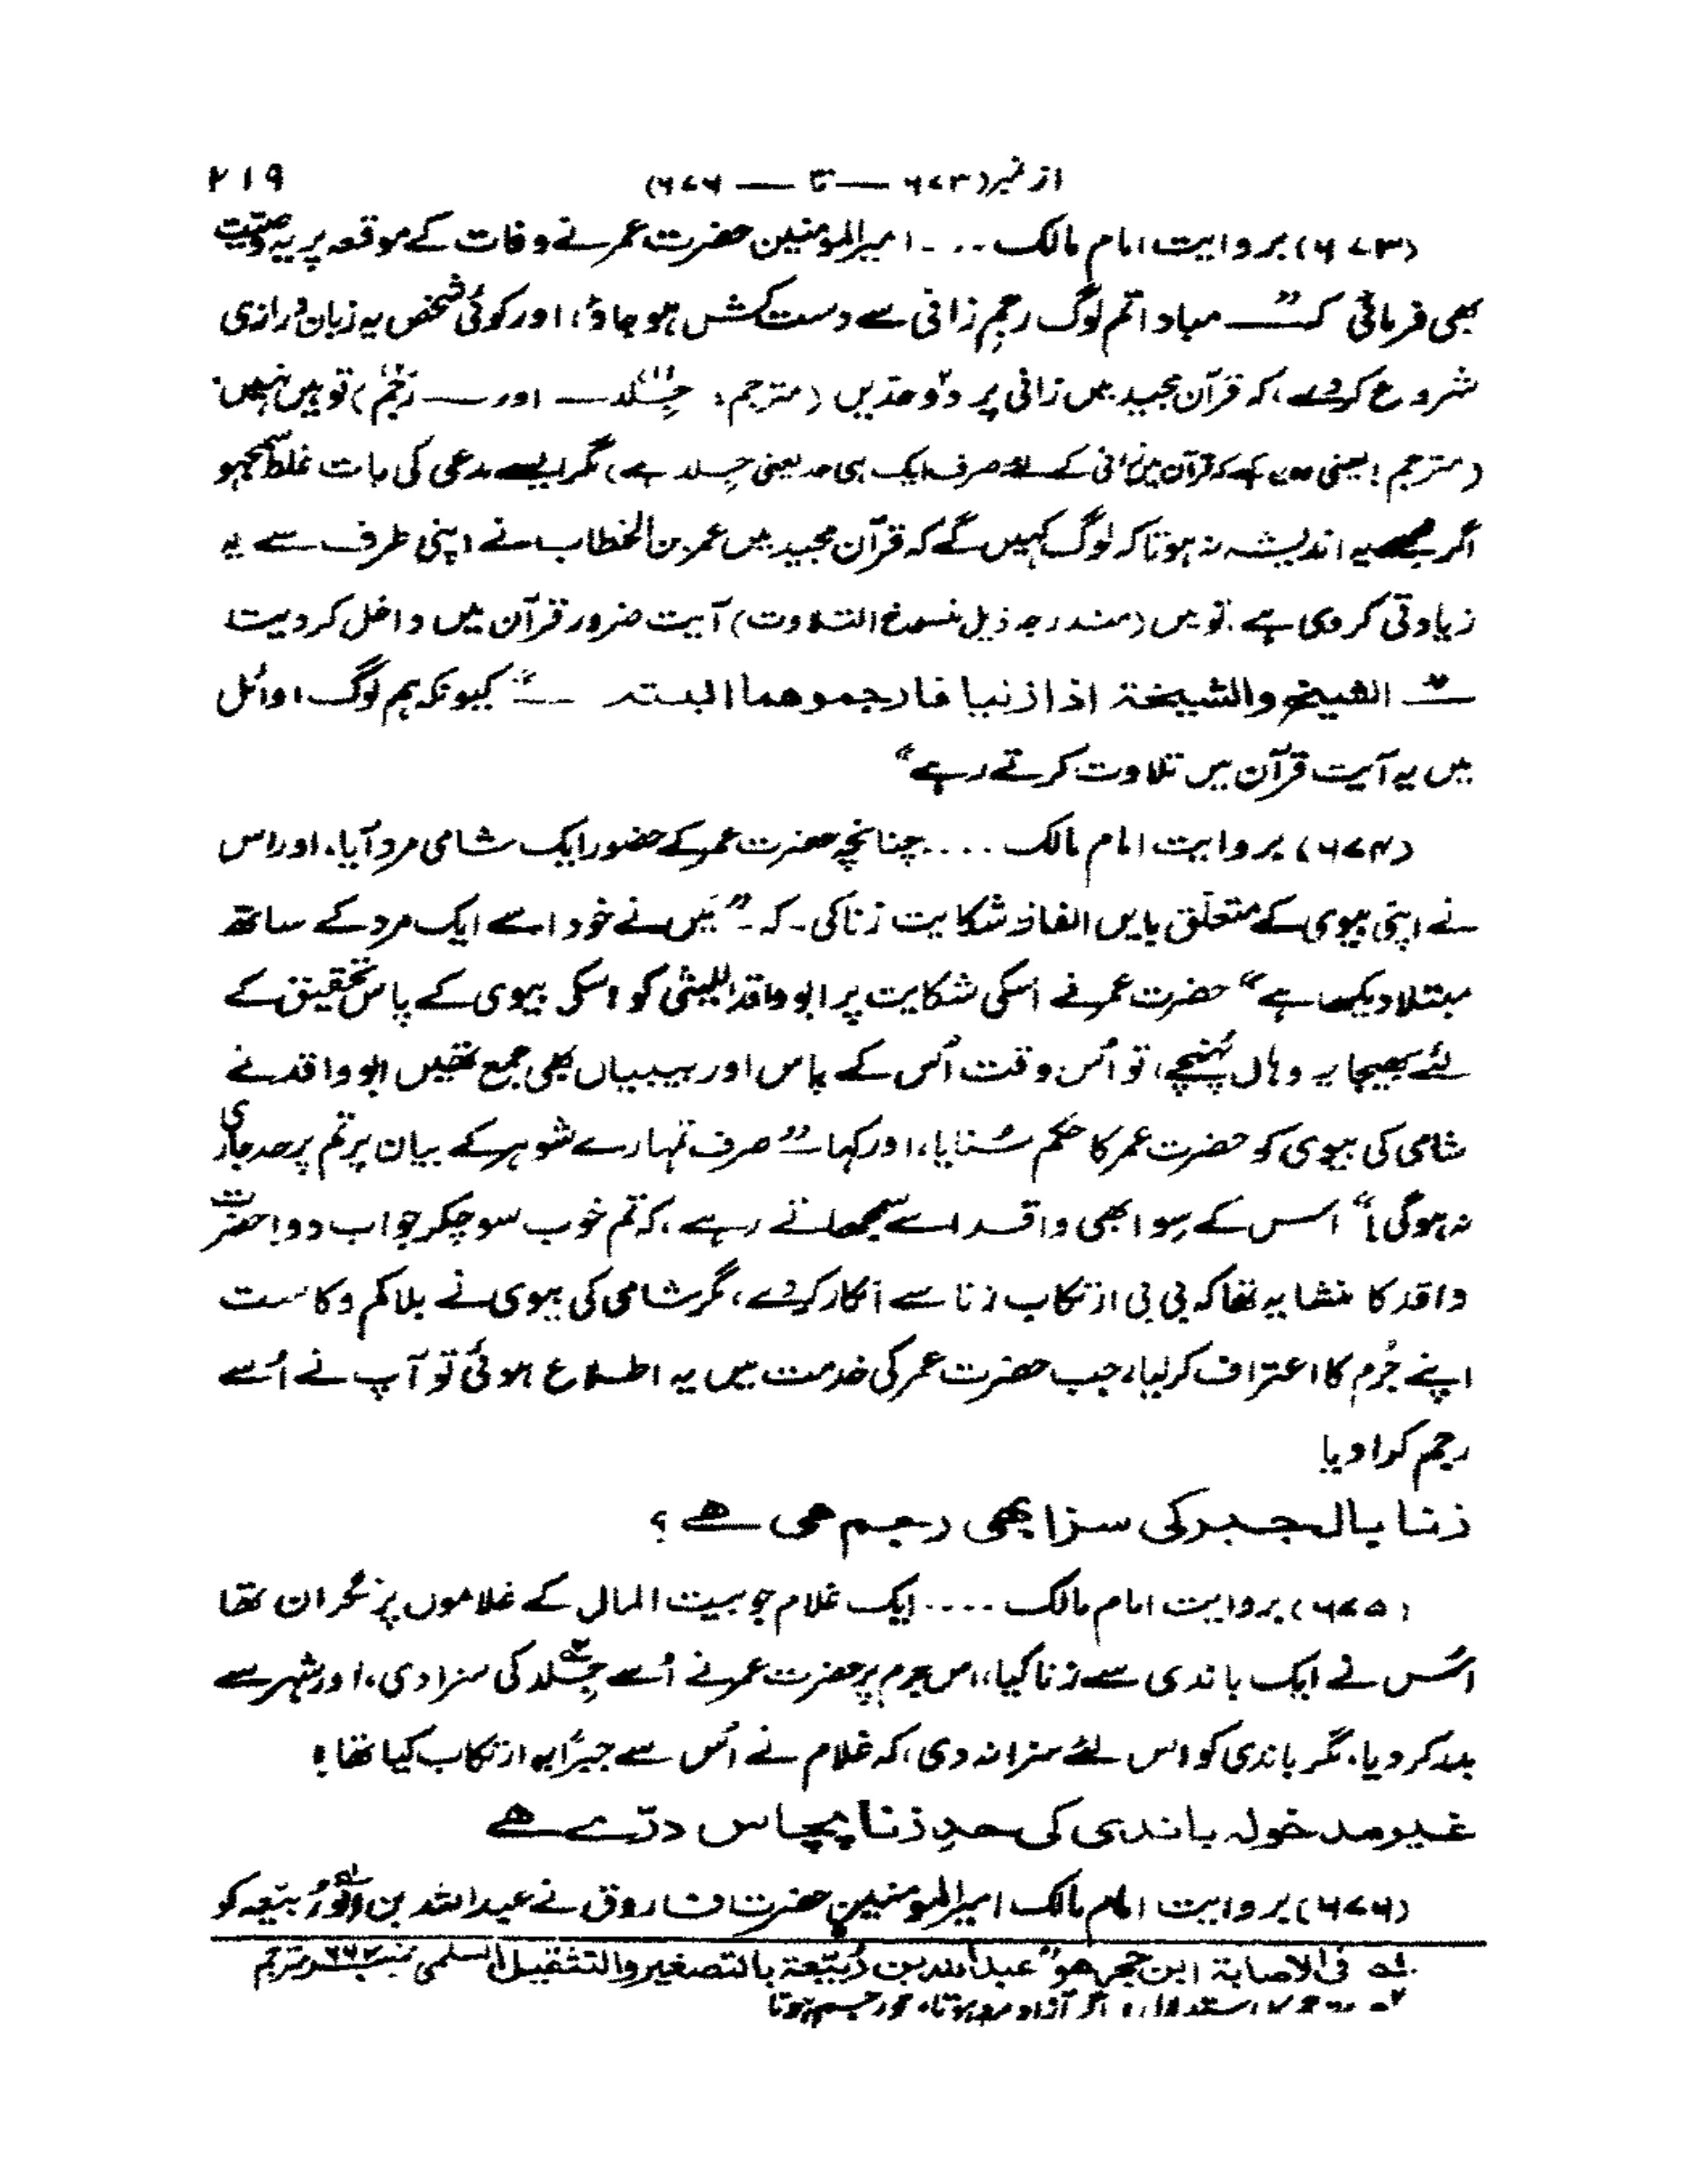 از نمبر (۶۷۳ — تا — ۶۷۶) ۲۱۹
(۶۷۳) بروایت امام مالک ... امیرالمؤمنین حضرت عمر نے وفات کے موقعہ پر یہ وصیت
بھی فرمائی کہ — "مبادا تم لوگ رجمِ زانی سے دست کش ہو جاؤ، اور کوئی شخص یہ زبان درازی
شروع کر دے، کہ قرآن مجید میں زانی پر دو حدیں (مترجم: جلد — اور — رجم) تو ہیں نہیں،
(مترجم: یعنی یوں کہے کہ قرآن میں زانی کے لئے صرف ایک ہی حد یعنی جلد ہے) مگر ایسے مدعی کی بات غلط سمجھو
اگر مجھے یہ اندیشہ نہ ہوتا کہ لوگ کہیں گے کہ قرآن مجید میں عمر بن الخطاب نے اپنی طرف سے یہ
زیادتی کر دی ہے، تو میں (مندرجہ ذیل منسوخ التلاوت) آیت ضرور قرآن میں داخل کر دیتا
— الشیخ والشیخۃ اذا زنیا فارجموھما البتہ — کیونکہ ہم لوگ اوائل
میں یہ آیت قرآن میں تلاوت کرتے رہے"
(۶۷۴) بروایت امام مالک .... چنانچہ حضرت عمر کے حضور ایک شامی مرد آیا، اور اس
نے اپنی بیوی کے متعلق بایں الفاظ شکایت زنا کی۔ کہ۔ "میں نے خود اسے ایک مرد کے ساتھ
مبتلا دیکھا ہے" حضرت عمر نے اسکی شکایت پر ابو واقد اللیثی کو اسکی بیوی کے پاس تحقیق کے
لئے بھیجا یہ وہاں پہنچے، تو اُس وقت اُس کے پاس اور بیبیاں بھی جمع تھیں ابو واقد نے
شامی کی بیوی کو حضرت عمر کا حکم سُنایا، اور کہا — "صرف تمہارے شوہر کے بیان پر تم پر حد جاری
نہ ہوگی!" اس کے سوا بھی واقد اسے سمجھاتے رہے، کہ تم خوب سوچکر جواب دو! حضرت
واقد کا منشا یہ تھا کہ بی بی ارتکاب زنا سے انکار کر دے، مگر شامی کی بیوی نے بلا کم و کاست
اپنے جُرم کا اعتراف کر لیا، جب حضرت عمر کی خدمت میں یہ اطلاع ہوئی تو آپ نے اُسے
رجم کرا دیا
زنا بالجبر کی سزا بھی رجم ھی ھے ؟
(۶۷۵) بروایت امام مالک .... ایک غلام جو بیت المال کے غلاموں پر نگران تھا
اُس نے ایک باندی سے زنا کیا، اس جرم پر حضرت عمر نے اُسے جلد کی سزا دی، اور شہر سے
بدر کر دیا، مگر باندی کو اس لئے سزا نہ دی، کہ غلام نے اُس سے جبراً یہ ارتکاب کیا تھا!
غیر مدخولہ باندی کی حدِ زنا پچاس درّے ھے
(۶۷۶) بروایت امام مالک امیرالمؤمنین حضرت فاروق نے عبداللہ بن رُبیّعہ کو
لہ فی الاصابۃ ابن حجر ھو "عبداللہ بن رُبیّعۃ بالتصغیر والتثقیل السلمی نمبر مترجم
اگر آزاد مرد ہوتا،